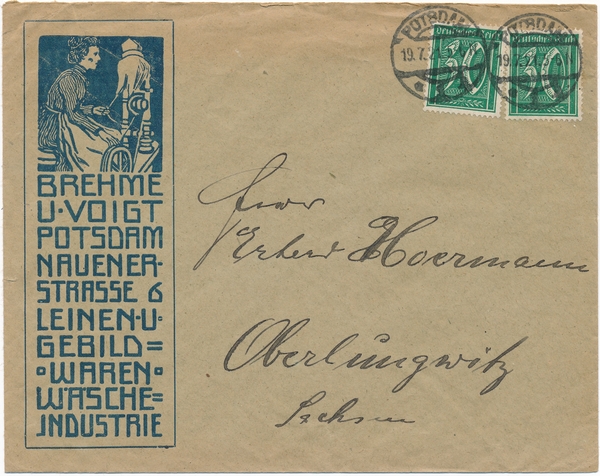 BREHME
U·VOIGT
POTSDAM
NAUENER-
STRASSE 6
LEINEN·U·
GEBILD=
·WAREN·
WÄSCHE=
INDUSTRIE
POTSDAM
19.7.
Deutsches Reich
30
POTSDAM
19.7.
Deutsches Reich
30
Hoermann
Oberlungwitz
Sachsen